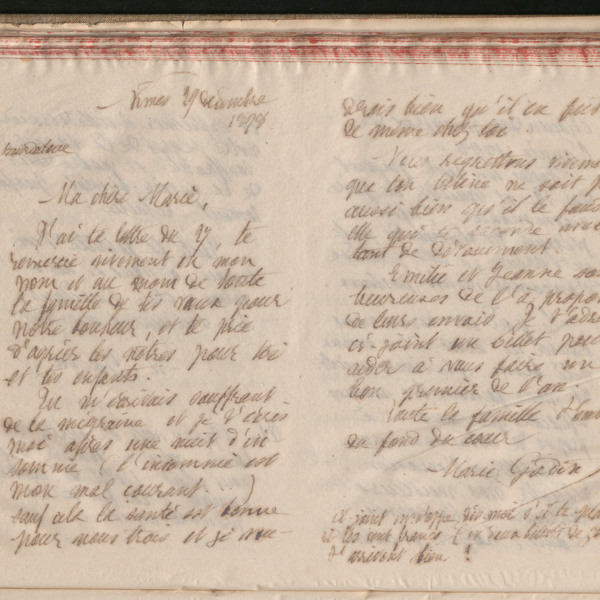 Nîmes 29 décembre
1898
Ma chère Marie,
J'ai ta lettre du 27, te
remercie vivement en mon
nom et au nom de toute
la famille de tes vœux pour
notre bonheur, et te prie
d'agréer les nôtres pour toi
et tes enfants.
Tu m'écrivais souffrant
de la migraine et je t'écris
moi après une nuit d'in
somnie (l'insomnie est
mon mal courant...)
sauf cela la santé est bonne
pour nous trois et je vou-
drais bien qu'il en fût
de même chez toi
Nous regrettons viveme
que ton ne soit p
aussi bien qu'il le faud
elle qui te seconde avec
tant de dévouement
Emilie et Jeanne so
heureuses de l'à propos
de leurs envois Je t'adre
ci joint un billet pour
aider à vous faire un
bon premier de l'an.
Toute la famille t'em
du fond du cœur
Marie Godin
dis moi s'il te pl
si les cent francs (en deux billets de 50
t'arrivent bien.!